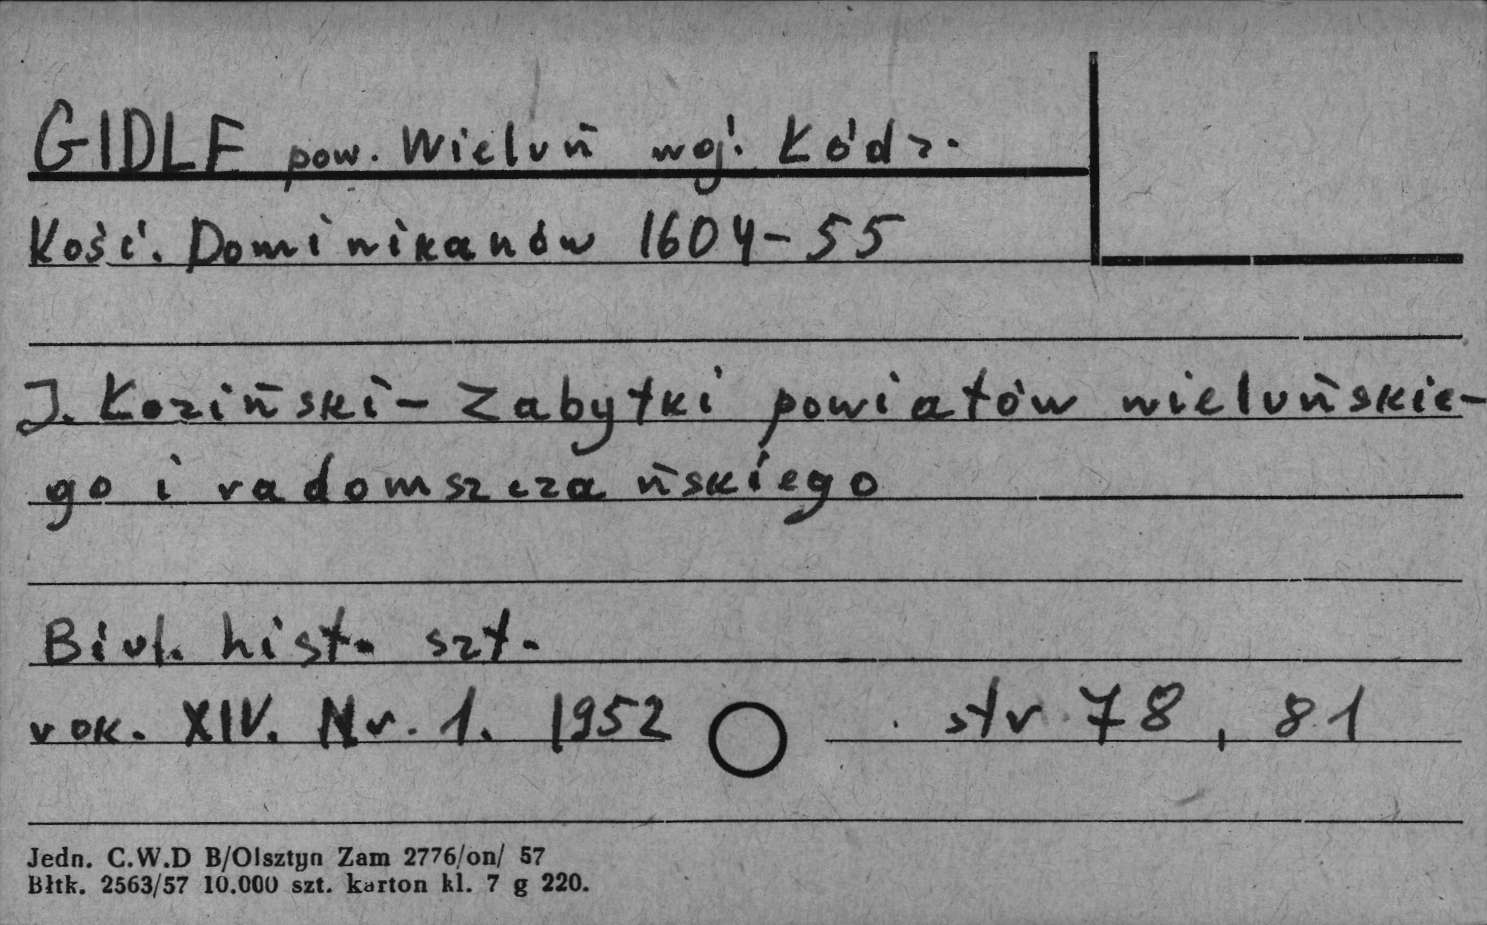 GIDLE pow. Wieluń woj. Łódz.
Kość. Dominikanów 1604-55
J. Łoziński - Zabytki powiatów wieluńskie-
go i radomszczańskiego
Biul. hist. szt.
rok. XIV. Nr. 1. 1952 str 78, 81
Jedn. C.W.D B/Olsztyn Zam 2776/on/ 57
Błtk. 2563/57 10.000 szt. karton kl. 7 g 220.